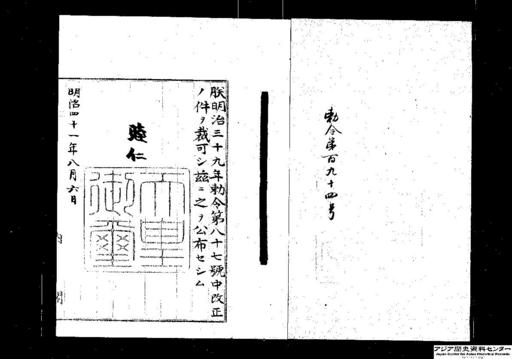 勅令第百九十四号
朕明治三十九年勅令第八十七號中改正
ノ件ヲ裁可シ茲ニ之ヲ公布セシム
睦仁
天皇御璽
明治四十一年八月六日
内閣
アジア歴史資料センター
Japan Center for Asian Historical Records